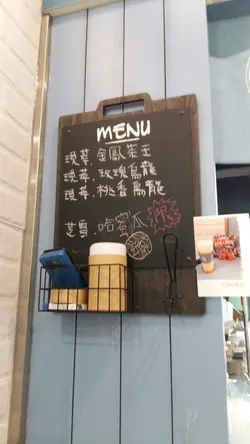 MENU
現萃.金鳳茶王
現萃.玫瑰烏龍
現萃.桃香烏龍
芝雪.哈蜜瓜